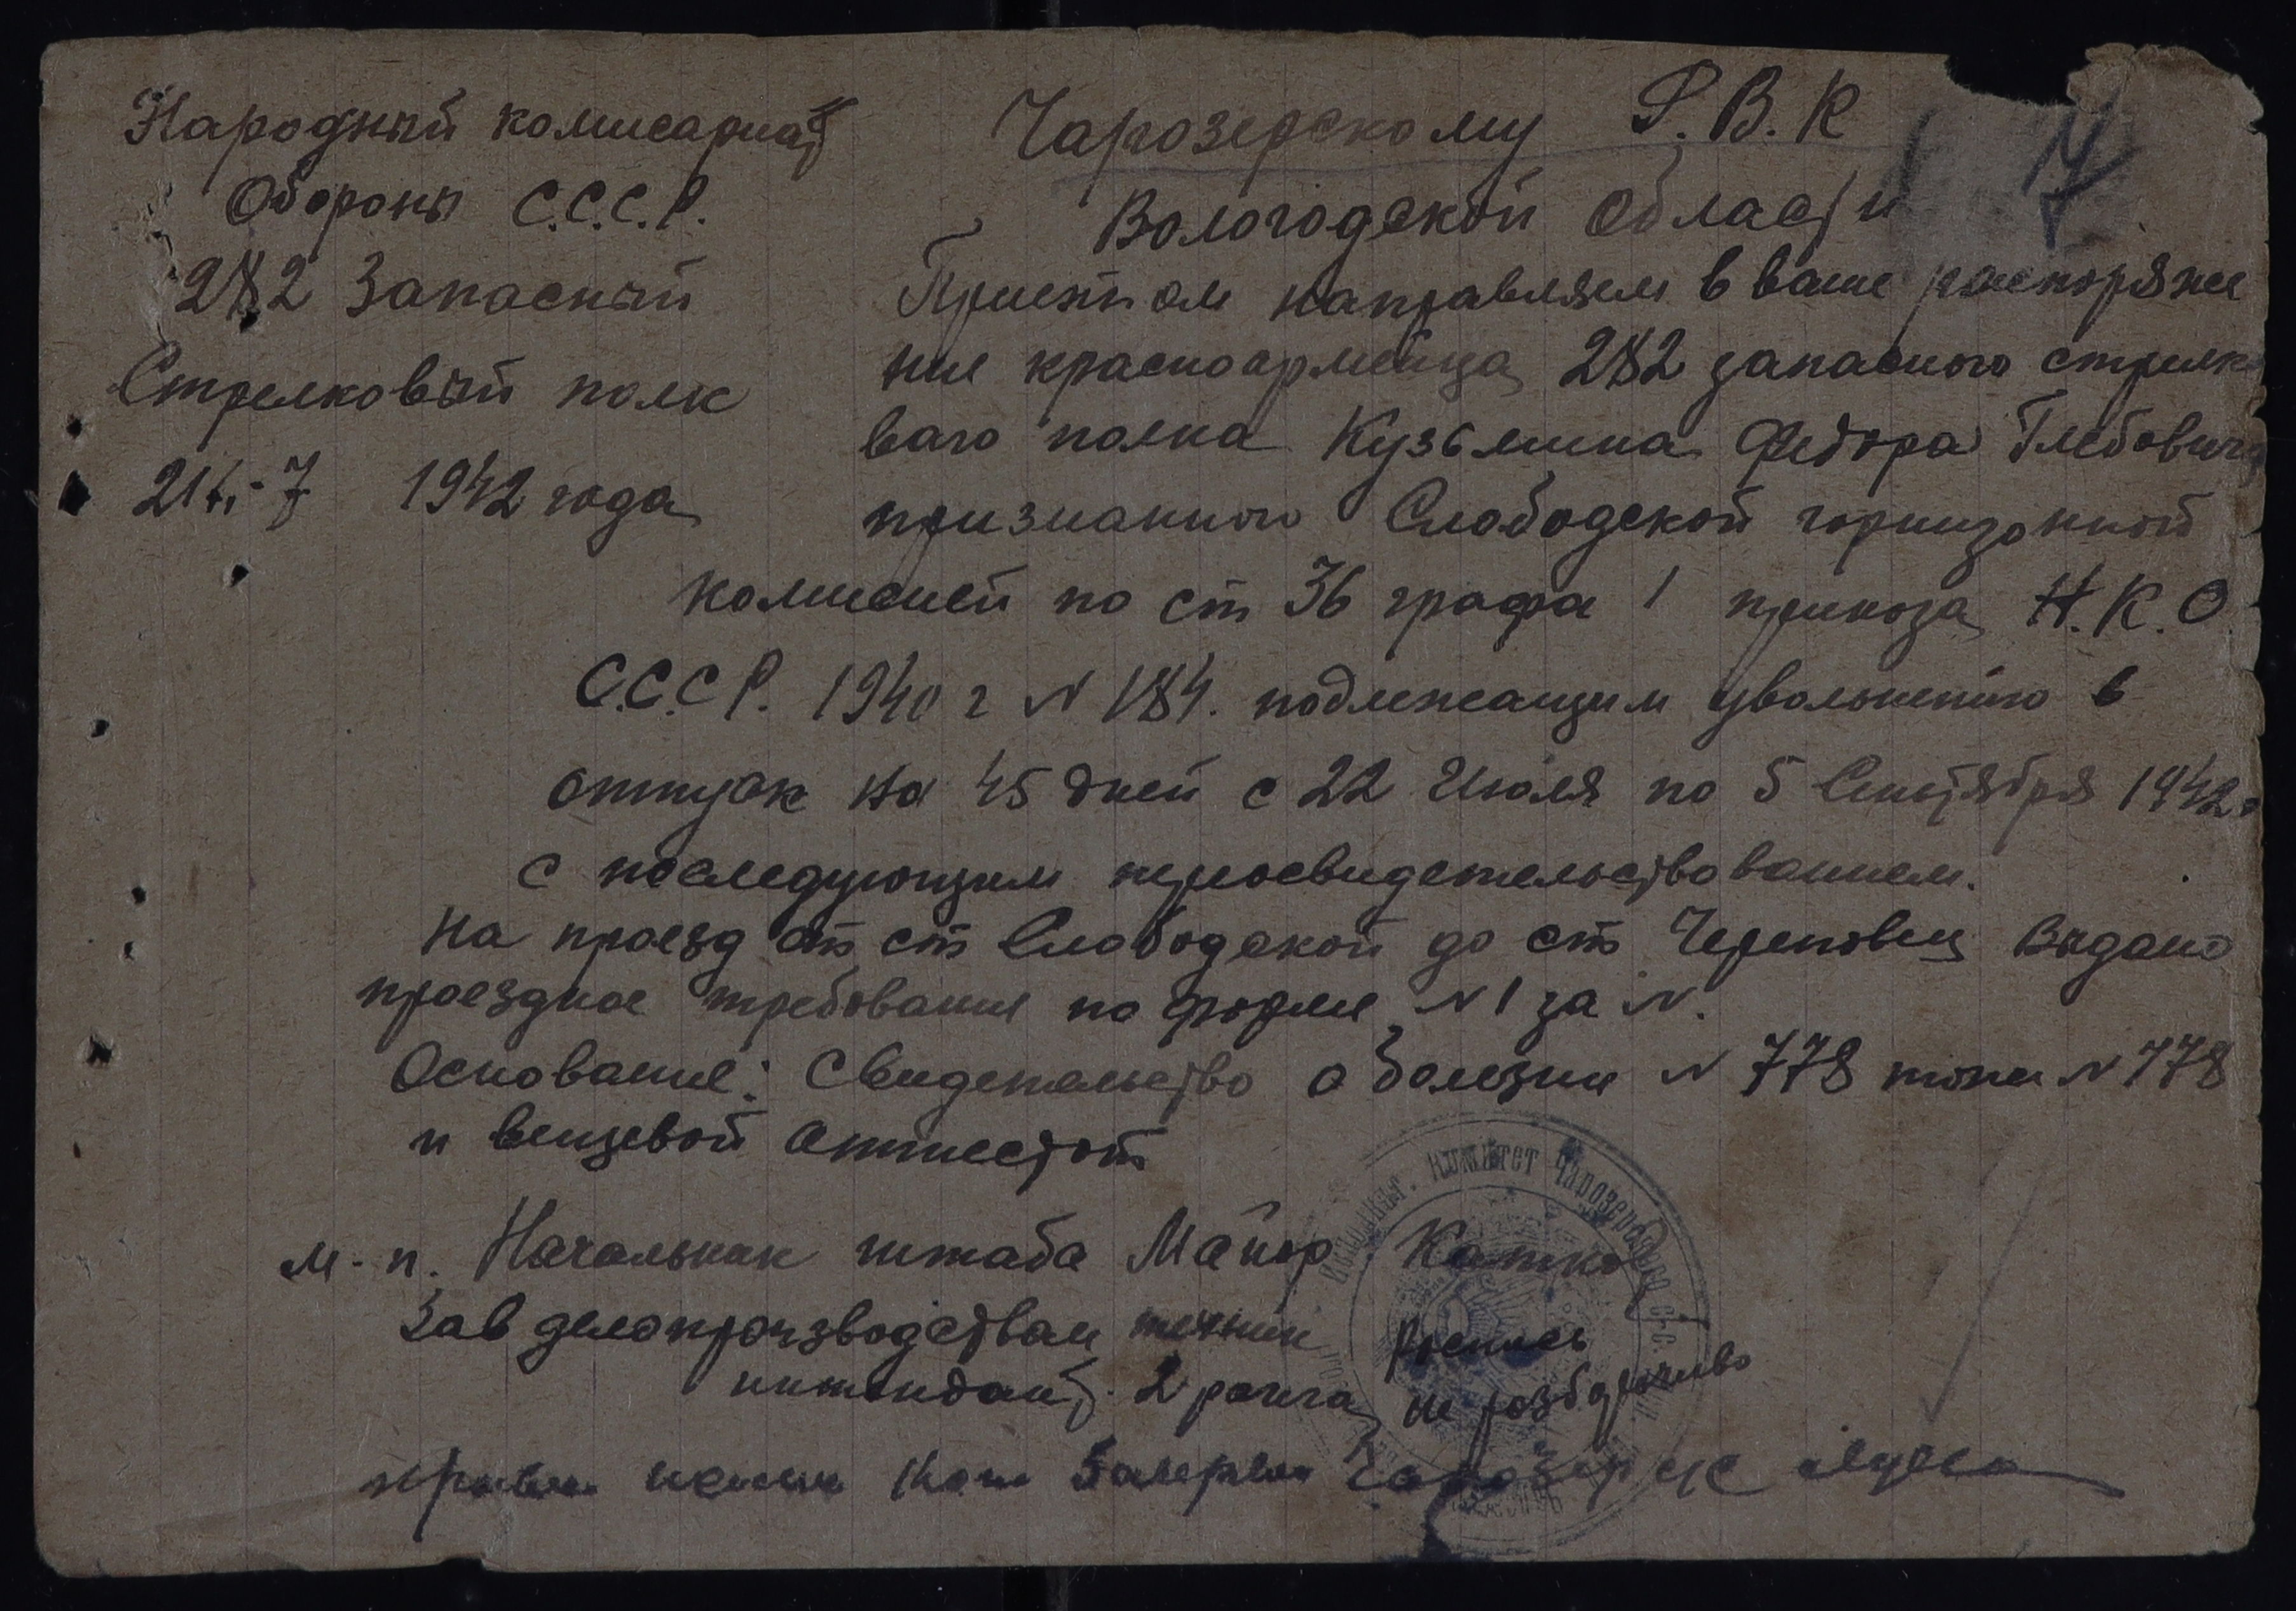 Народный комисариат
Обороны С.С.С.Р.
282 Запасный
Стрелковый полк
21/-7 1942 года
Чарозерскому Р.В.К
Вологодской области
При этом направляем в ваше распоряже
ние красноармейца 282 запасного стрелко
ваго полка Кузьмина Федора Глебовича
признанного Слободской горнизонной
комисией по ст 36 графа 1 приказа Н.К.О.
С.С.С.Р. 1940 г N 184. подлежащим увольнению в
отпуск на 45 дней с 22 Июля по 5 Сентября 1942 г
с последующим переосвидетельствованием.
На проезд от ст Слободской до ст Череповец выдано
проездное требование по форме N 1 за N.
Основание: Свидетельство о болезни N 778 тоже N 778
и вещевой аттестат
м. п. Начальник штаба Майор Катков
Зав делопроизводствам техник роспись
интендант 2 ранга не разборчиво
комитет Чарозерского с-с.